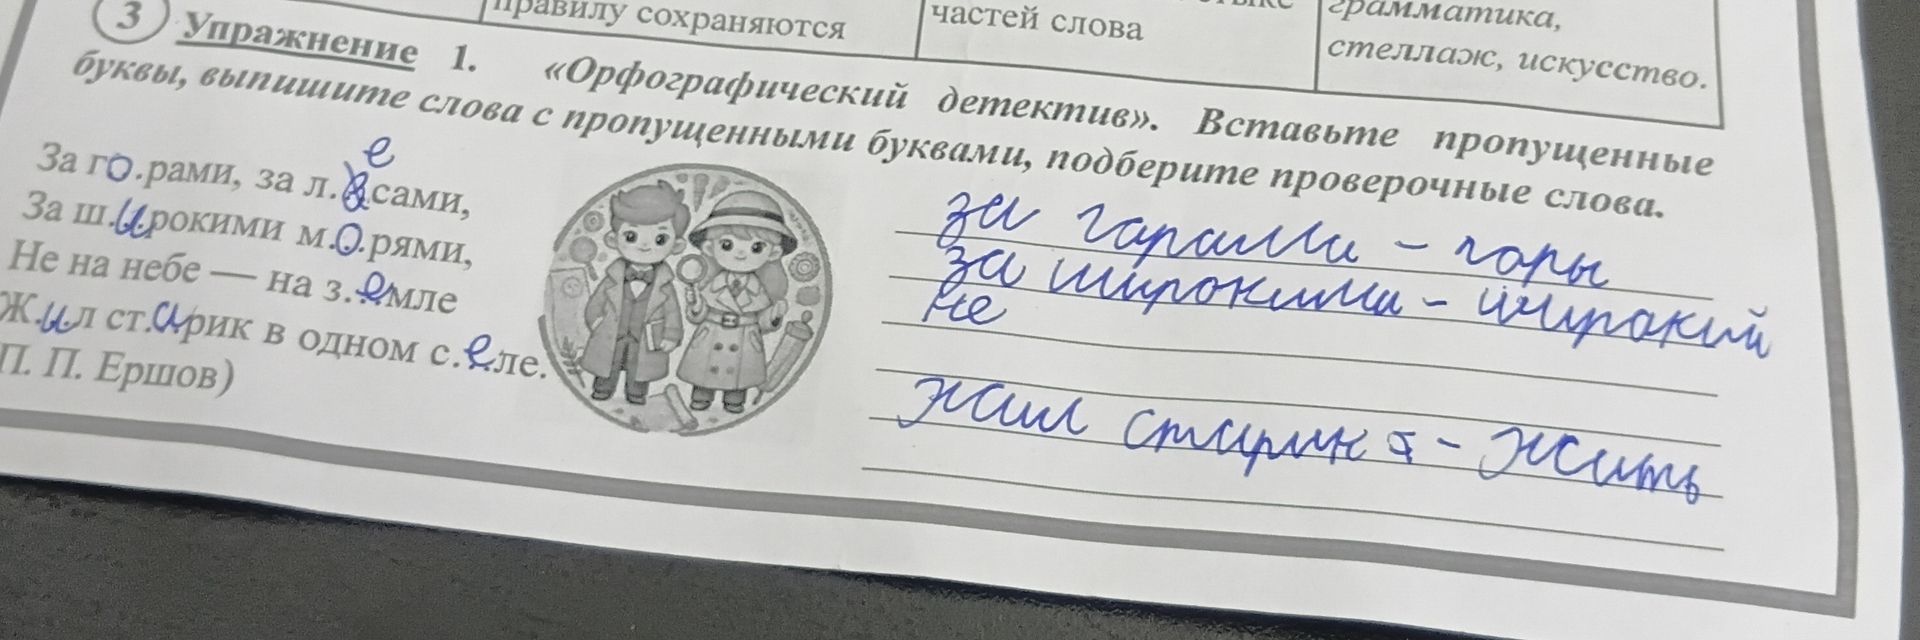 правилу сохраняются
частей слова
грамматика,
стеллаж, искусство.
3 Упражнение 1. «Орфографический детектив». Вставьте пропущенные
буквы, выпишите слова с пропущенными буквами, подберите проверочные слова.
За го.рами, за л.есами,
За ш.ирокими м.о.рями,
Не на небе — на з.емле
Ж.ил ст.арик в одном с.еле.
П. П. Ершов)
за гарами – горы
за широкими – широкий
не
жил старик – жить